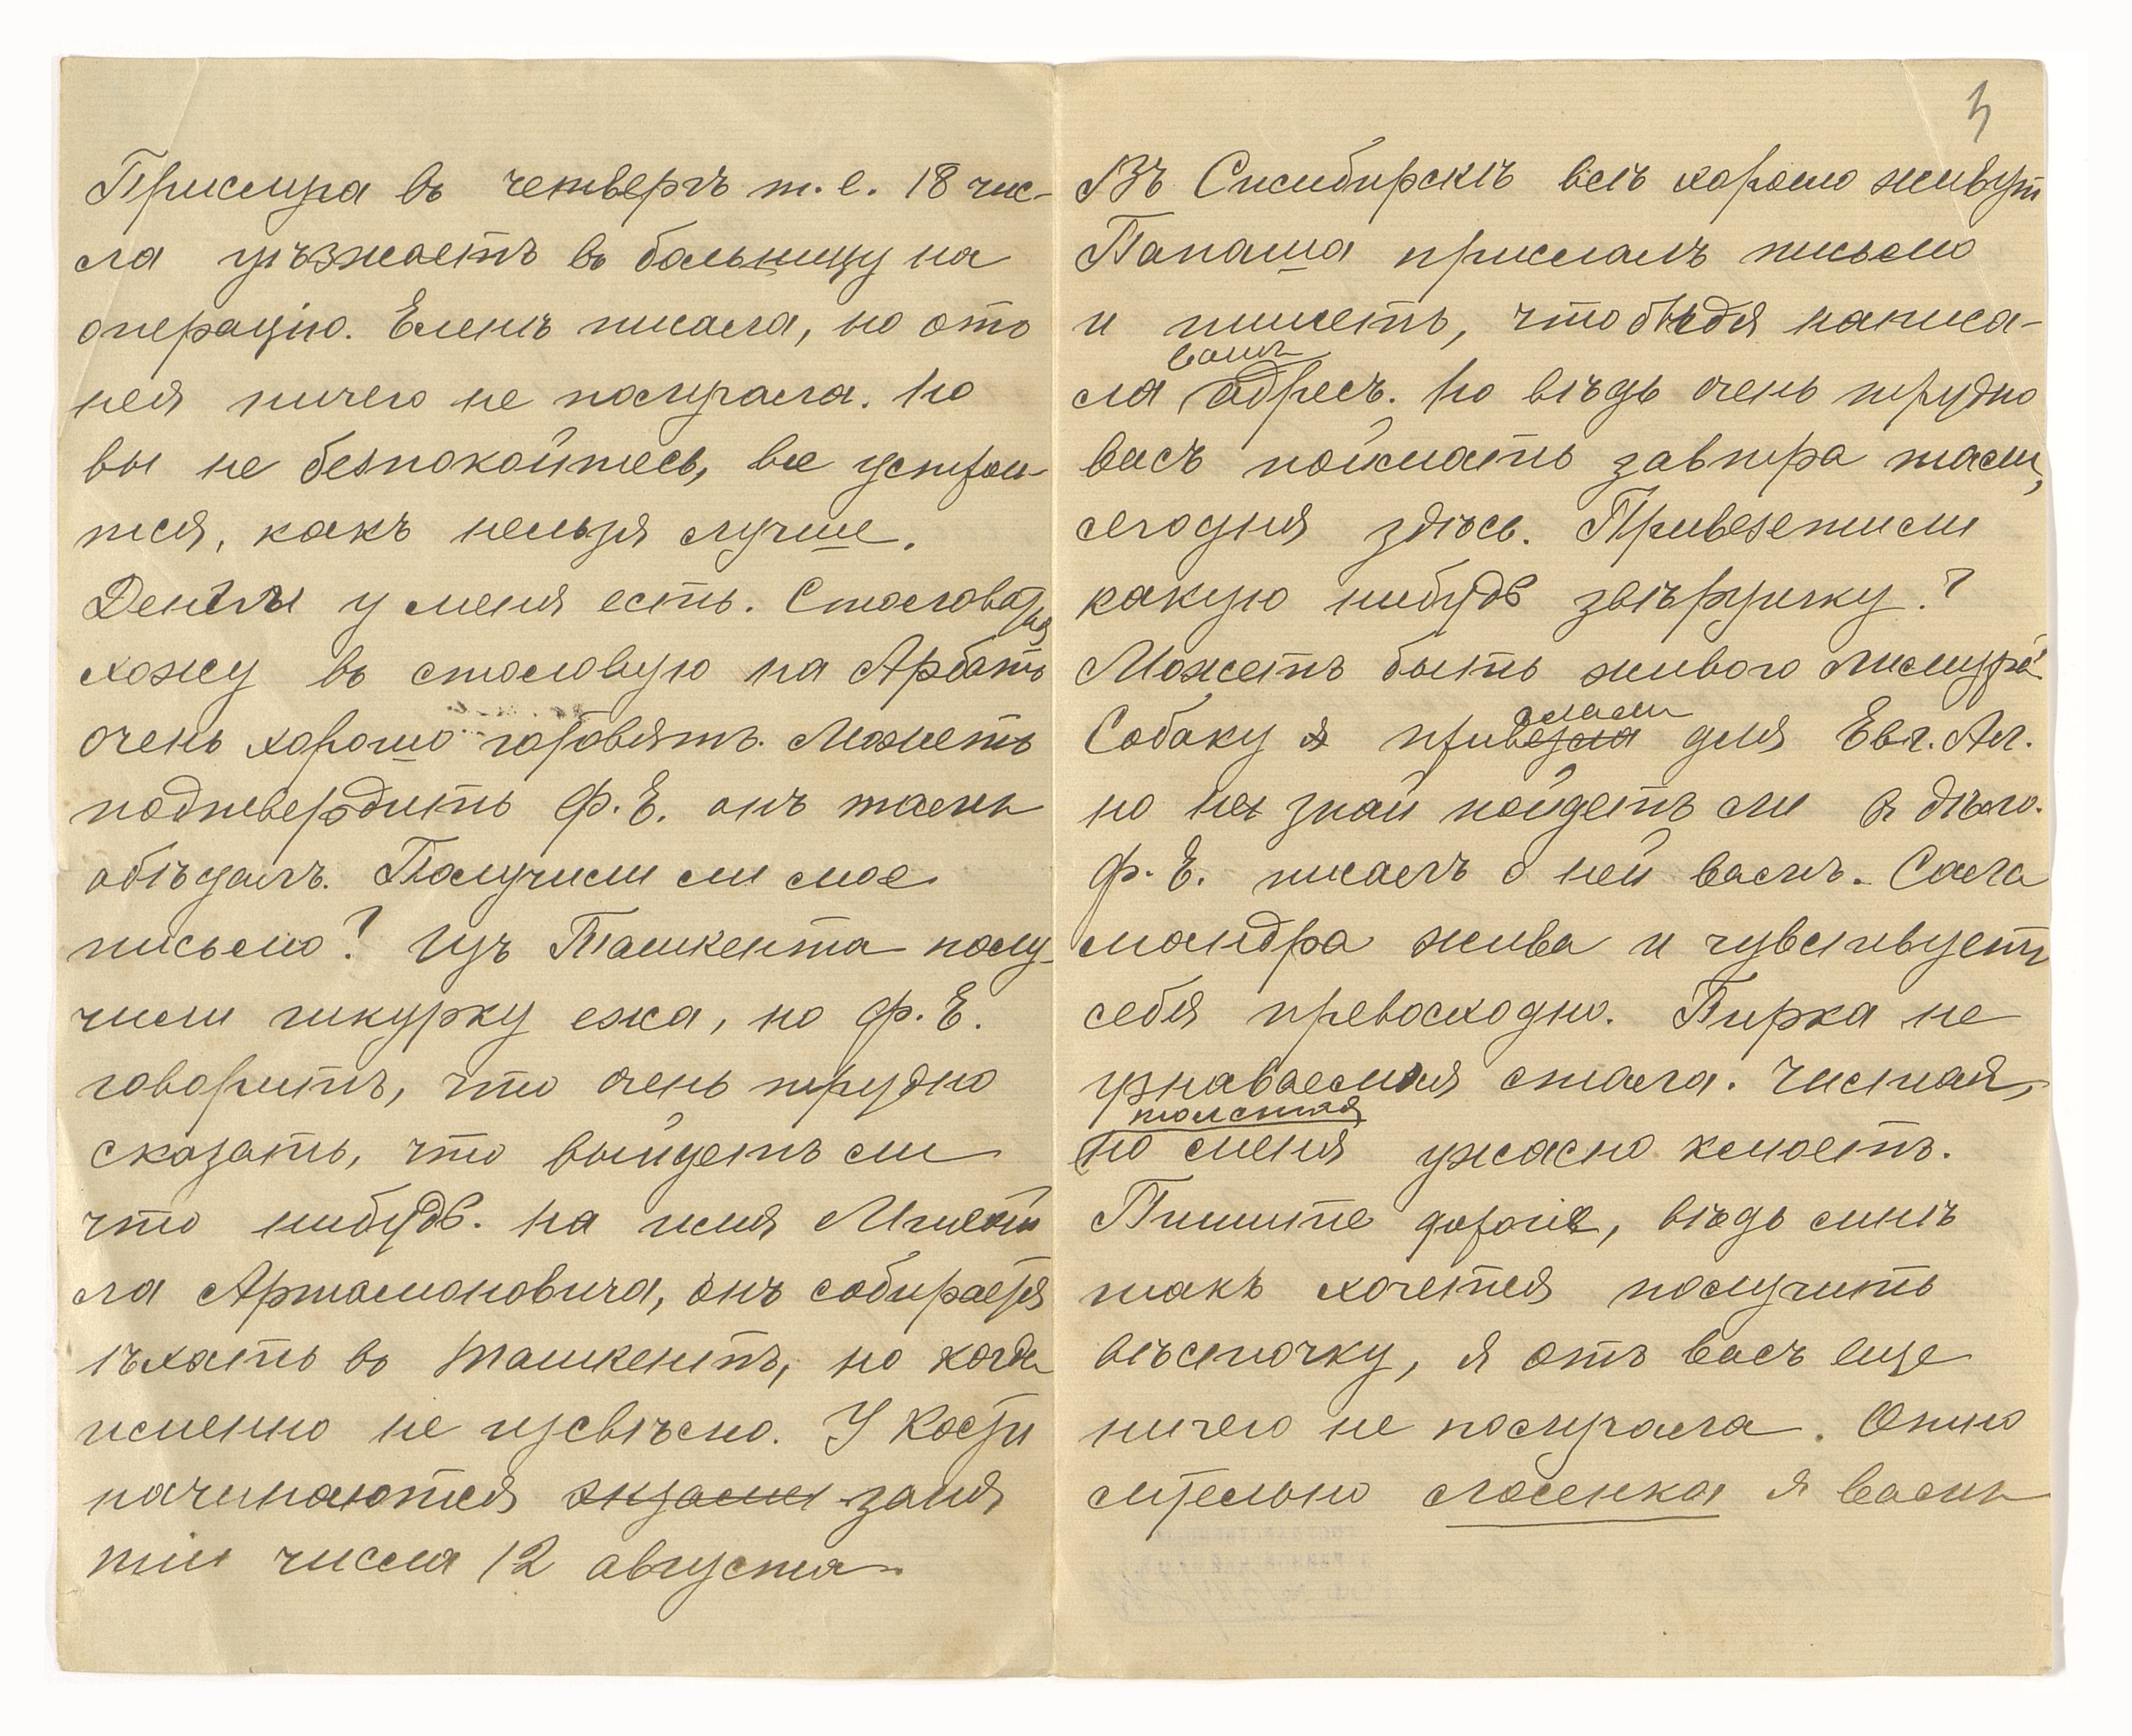 Прислуга въ четвергъ т. е. 18 чис-
ла уѣзжаетъ въ больницу на
операцію. Еленѣ писала, но отъ
нея ничего не получала. Но
вы не безпокойтесь, все устрои-
тся, какъ нельзя лучше.
Деньги у меня есть. Столоваться
хожу въ столовую на Арбатъ
очень хорошо готовятъ. Можетъ
подтвердить Ф. Е. онъ тамъ
обѣдалъ. Получили ли мое
письмо? Изъ Ташкента полу-
чили шкурку ежа, но Ф. Е.
говоритъ, что очень трудно
сказать, что выйдетъ ли
что нибудь. На имя Михаи
ла Артамоновича, онъ собирается
ѣхать въ Ташкентъ, но когда
именно не извѣсно. У Кости
начинаются экзамен заня
тія числа 12 августа.
5
Въ Симбирскѣ всѣ хорошо живут
Папаша прислалъ письмо
и пишетъ, чтобы я написа-
вашъ
ла адресъ. Но вѣдь очень трудно
васъ поймать завтра тамъ,
сегодня здѣсь. Привезетили
какую нибудь звѣрушку?
Можетъ быть живого лемура?
слали
Собаку я привезла для Евг. Ал.
но не знай пойдетъ ли в дѣло.
Ф. Е. писалъ о ней вамъ. Сала
мандра жива и чувствует
себя превосходно. Пирка не
узнаваемая стала. Чистая,
толстая
но меня ужасно кусаетъ.
Пишите дорогіе, вѣдь мнѣ
такъ хочется получить
вѣсточку, я отъ васъ еще
ничего не получала. Отно
сительно лосенка я вамъ